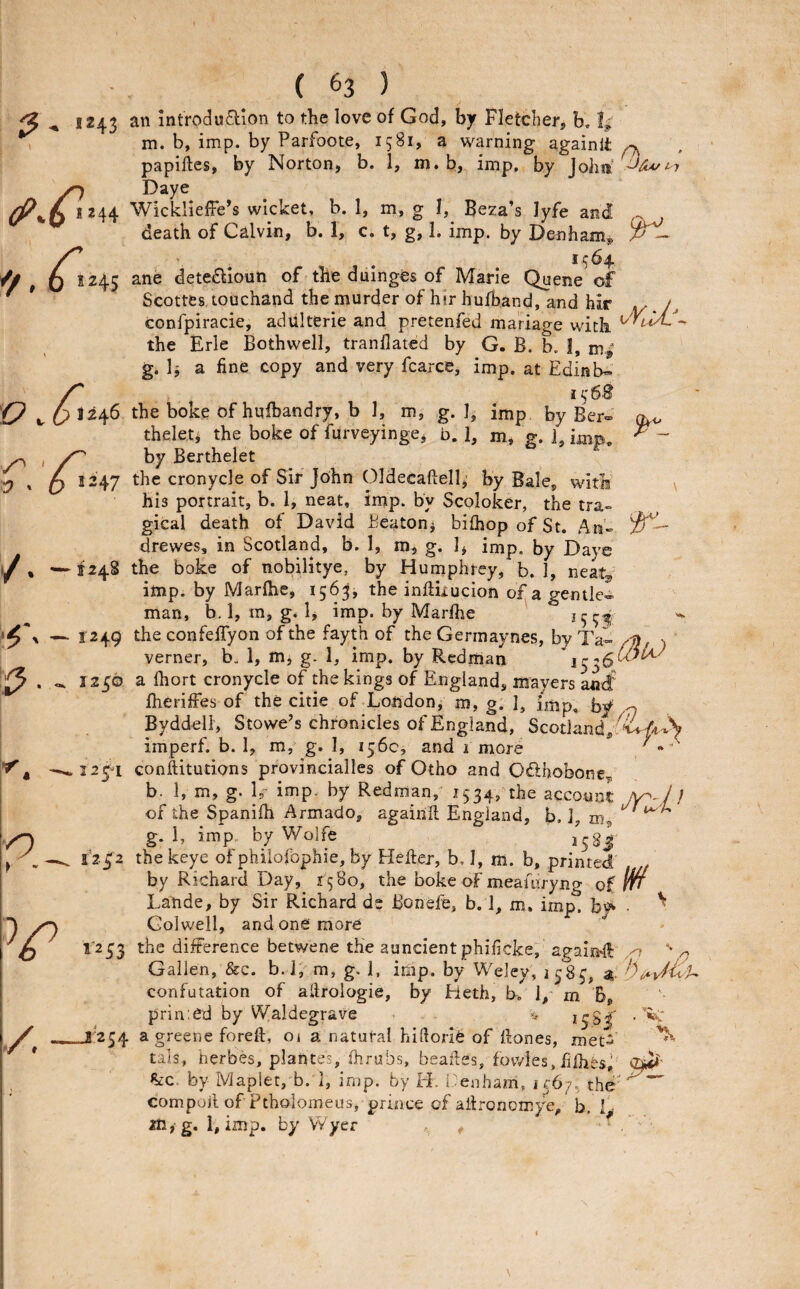 ( 63 )
3 1243 an introduction to the love of God, by Fletcher, b. l,
m. b, imp. by Parfoote, 1581, a warning againſt
papiſtes, by Norton, b. l, m. b, imp. by John
Daye
6 1244 Wicklieffe's wicket, b. l, m, g l, Beza's lyfe and
death of Calvin, b. l, c. t, g, l. imp. by Denham,
1564
6 1245 ane detectioun of the duinges of Marie Quene of
Scottes touchand the murder of hir huſband, and hir
conſpiracie, adulterie and pretenſed mariage with
the Erle Bothwell, tranſlated by G. B. b. l, m,
g. l, a fine copy and very ſcarce, imp. at Edinb-
1568
6 1246 the boke of huſbandry, b l, m, g. l, imp by Ber-
thelet, the boke of ſurveyinge, b. l, m, g. l, imp.
by Berthelet
6 1247 the cronycle of Sir John Oldecaſtell, by Bale, with
his portrait, b. l, neat, imp. by Scoloker, the tra-
gical death of David Beaton, biſhop of St. An-
drewes, in Scotland, b. l, m, g. l, imp. by Daye
— 1248 the boke of nobilitye, by Humphrey, b. l, neat,
imp. by Marſhe, 1563, the inſtitucion of a gentle-
man, b. l, m, g. l, imp. by Marſhe
— 1249 the confeſſyon of the fayth of the Germaynes, by Ta-
verner, b. l, m, g. l, imp. by Redman 1536
3 . - 1250 a ſhort cronycle of the kings of England, mayers and
ſheriffes of the citie of London, m, g. l, imp. by
Byddell, Stowe's chronicles of England, Scotland,
imperf. b. l, m, g. l, 1560, and 1 more
— 1251 conſtitutions provincialles of Otho and Octhobone,
b. l, m, g. l, imp. by Redman, 1534, the account
of the Spaniſh Armado, againſt England, b. l, m,
g. l, imp by Wolfe
— 1252 the keye of philoſophie, by Heſter, b. l, m. b, printed
by Richard Day, 1580, the boke of meaſuryng of
Lande, by Sir Richard de Boneſe, b. l, m. imp. by
Colwell, and one more
1253 the difference betwene the auncient phiſicke, againſt
Gallen, &c. b. l, m, g. l, imp. by Weley, 1585, a
confutation of aſtrologie, by Heth, b. l, m B,
printed by Waldegrave
—1254 a greene foreſt, or a natural hiſtorie of ſtones, met-
tals, herbes, plantes, ſhrubs, beaſtes, fowles, fiſhes,
&c. by Maplet, b. l, imp. by H. Denham, 1567, the
compoſt of Ptholomeus, prince of aſtronomye, b. l,
m, g. l, imp. by Wyer